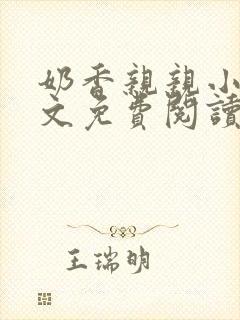 奶香親親小
文免費閱讀
王瑞明